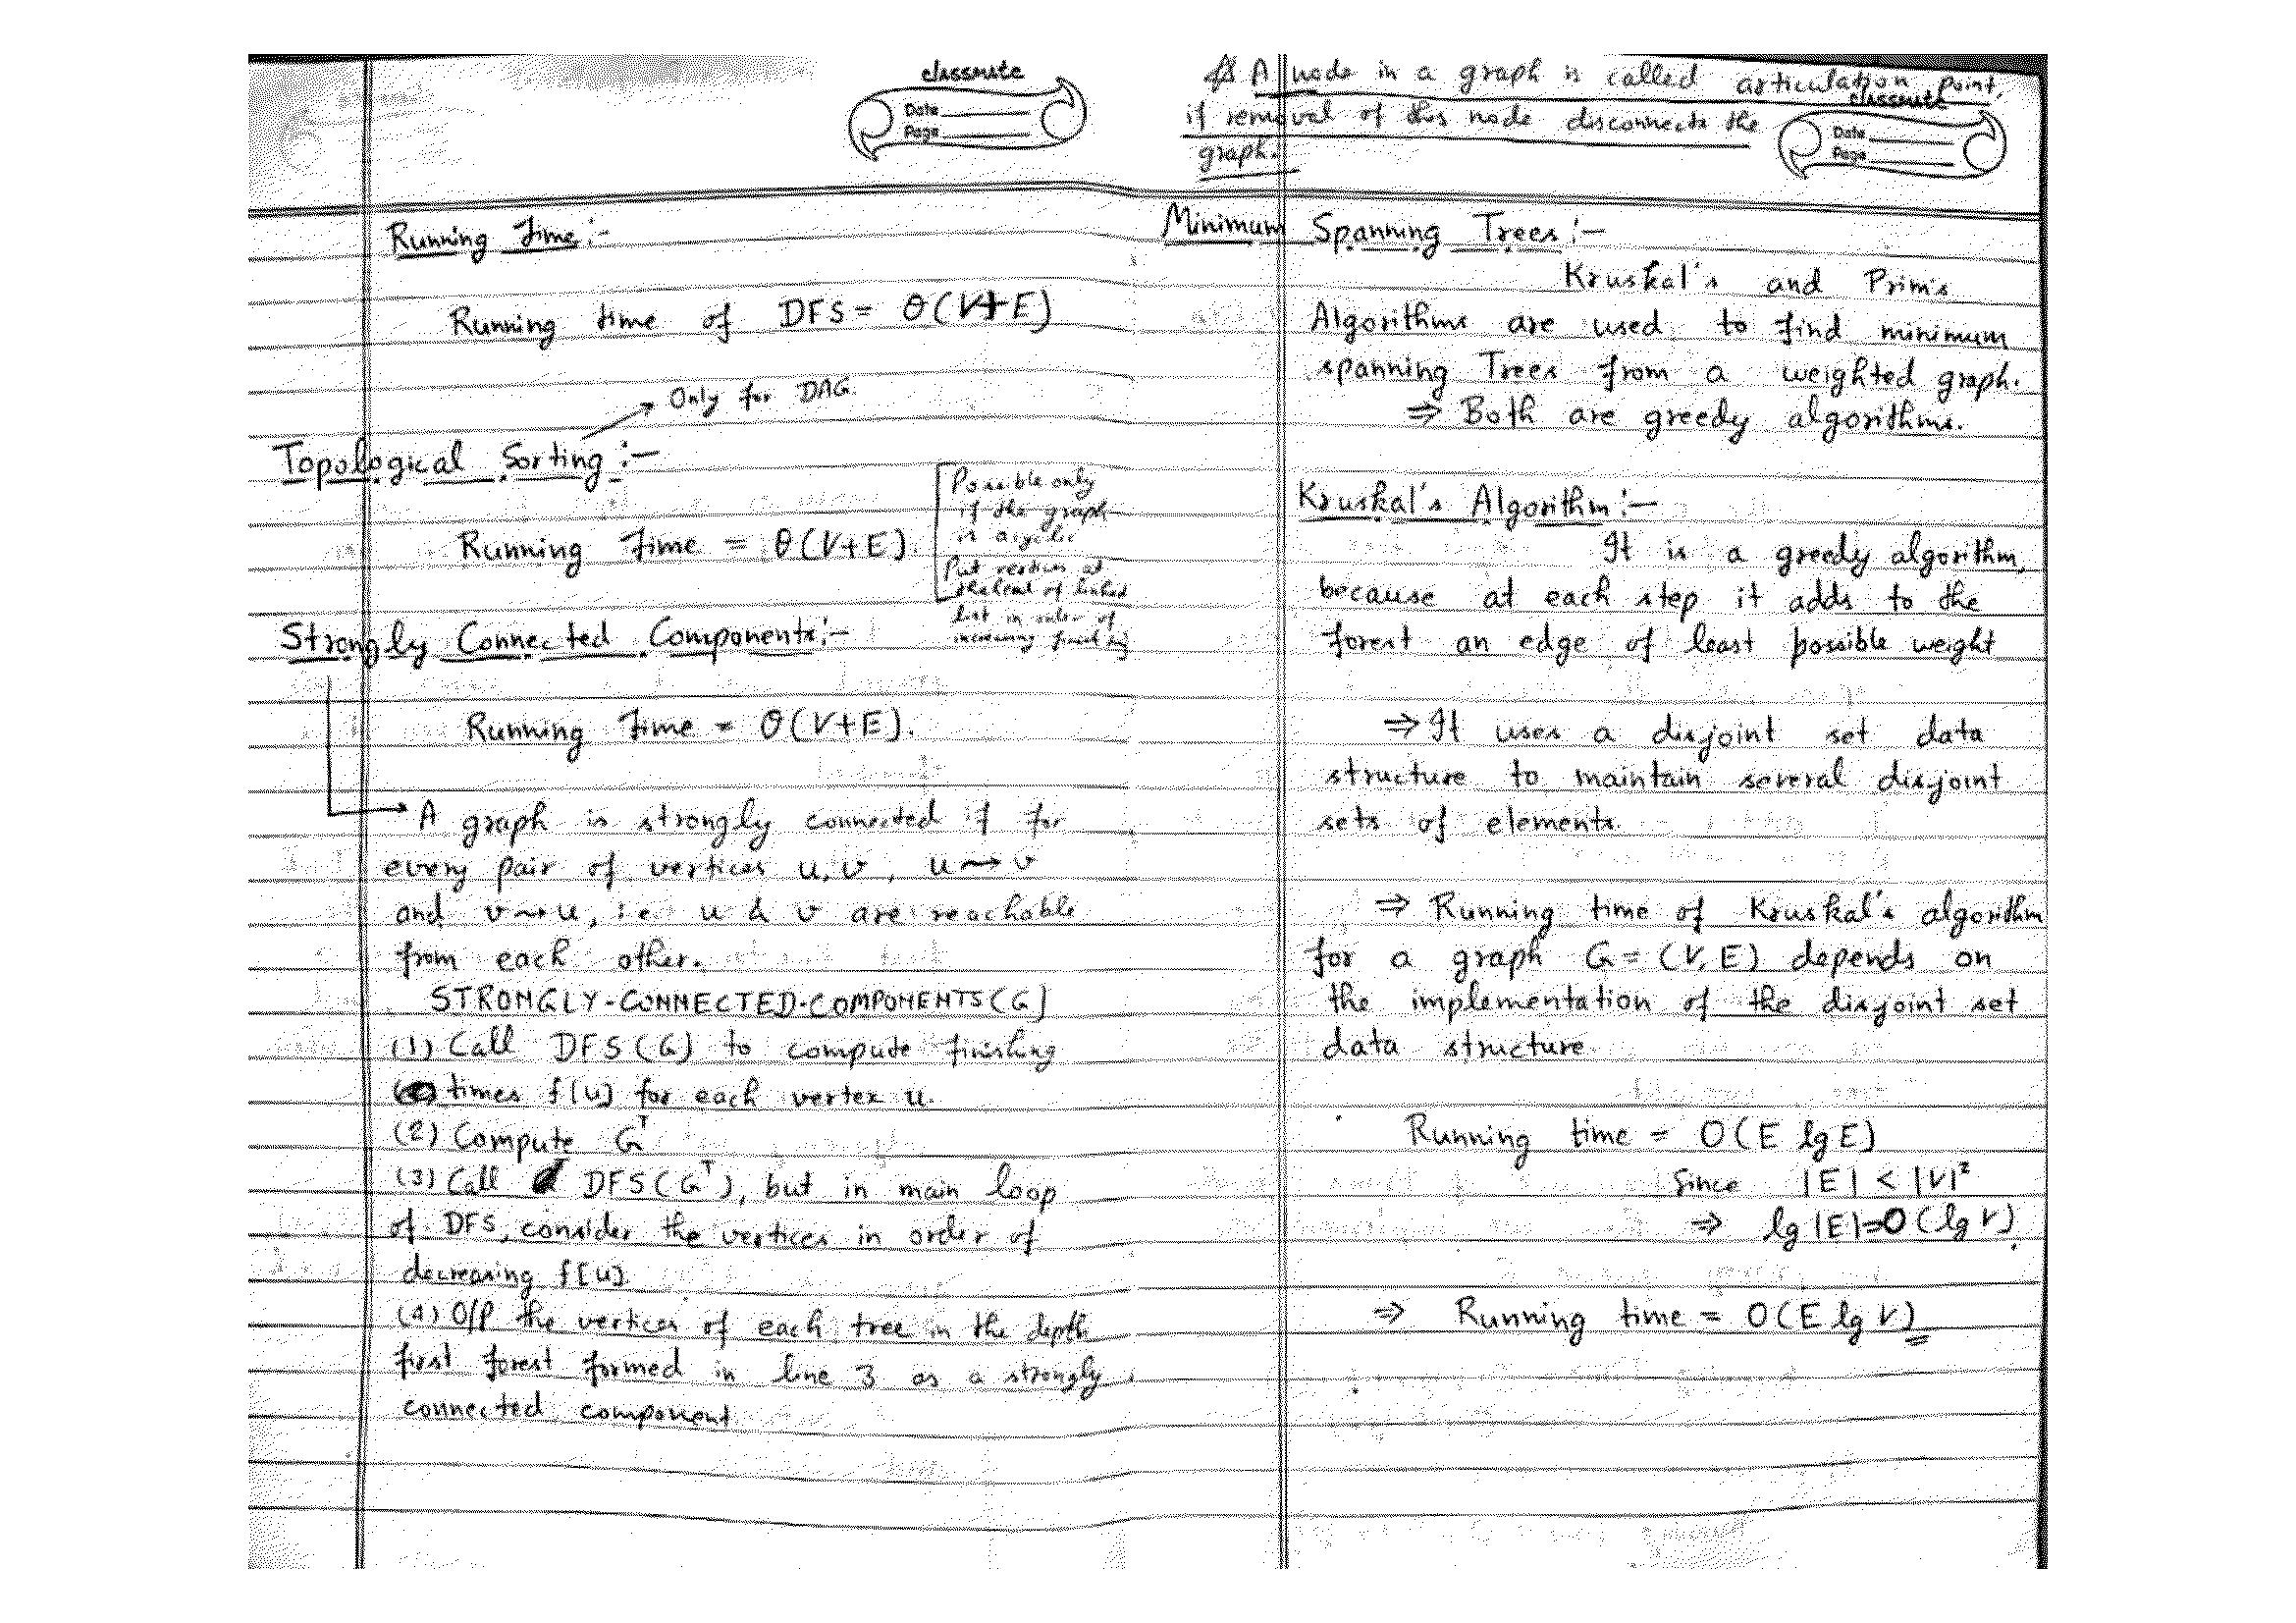 classmate
Date
Page
Running Time:-
Running time of DFS = θ(V+E)
Only for DAG.
Topological Sorting :-
Running Time = θ(V+E).
Possible only
if the graph
is acyclic
Put vertices at
the end of linked
list in order of
increasing
Strongly Connected Components:-
Running Time = θ(V+E).
A graph is strongly connected if for
every pair of vertices u, v, u⇝v
and v⇝u, i.e. u & v are reachable
from each other.
STRONGLY-CONNECTED-COMPONENTS(G)
(1) Call DFS(G) to compute finishing
times f[u] for each vertex u.
(2) Compute Gᵀ
(3) Call DFS(Gᵀ), but in main loop
of DFS, consider the vertices in order of
decreasing f[u].
(4) O/P the vertices of each tree in the depth
first forest formed in line 3 as a strongly
connected component
A node in a graph is called articulation point,
if removal of this node disconnects the
graph.
classmate
Date
Page
Minimum Spanning Trees :-
Kruskal's and Prim's
Algorithms are used to find minimum
spanning Trees from a weighted graph.
⇒ Both are greedy algorithms.
Kruskal's Algorithm :-
It is a greedy algorithm,
because at each step it adds to the
forest an edge of least possible weight
⇒ It uses a disjoint set data
structure to maintain several disjoint
sets of elements.
⇒ Running time of Kruskal's algorithm
for a graph G = (V, E) depends on
the implementation of the disjoint set
data structure.
Running time = O(E lg E)
Since |E| < |V|²
⇒ lg |E| = O(lg V).
⇒ Running time = O(E lg V)